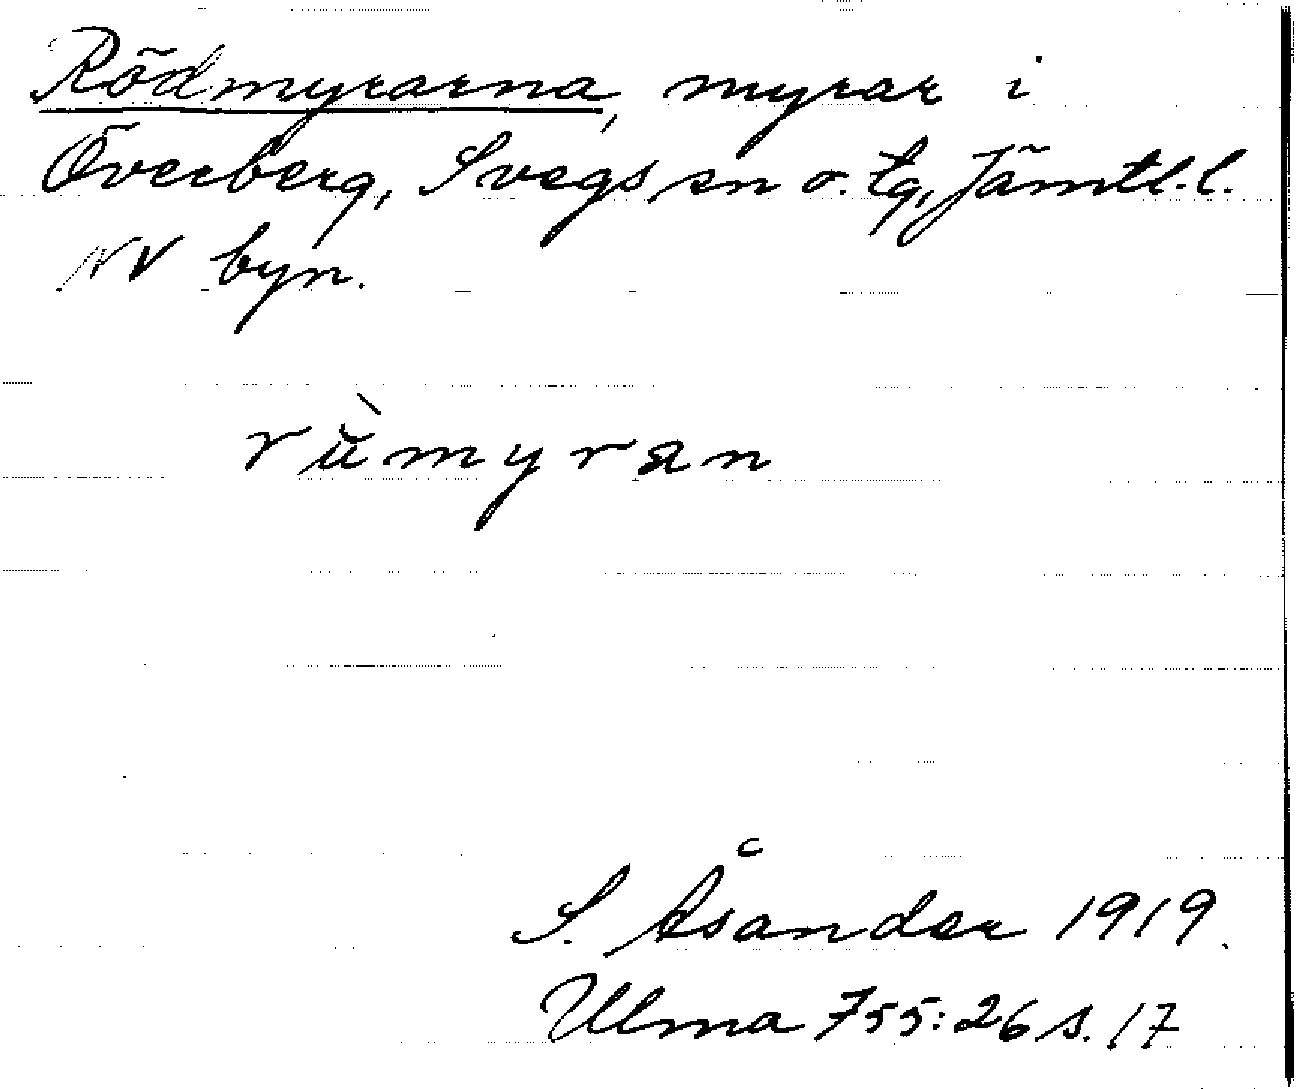 Rödmyrarna, myrar i
Överberg, Svegs sn o. tg, Jämtl.l.
NV byn.
rùmyran
S. Åsander 1919.
Ulma 755:26 s. 17